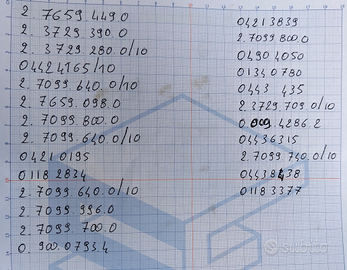 2. 7659.449.0
2. 3729.390.0
2. 3729.280.0/10
04424165/10
2.7099.640.0/10
2.7659.098.0
2.7099.800.0
2.7099.640.0/10
04210195
01182834
2.7099.640.0/10
2.7099.996.0
2.7099.700.0
0.900.0793.4
04213839
2.7099.800.0
04904050
01340780
0443 435
2.3729.709.0/10
0.009.4286.2
04436315
2.7099.740.0/10
04438438
01183377
subito